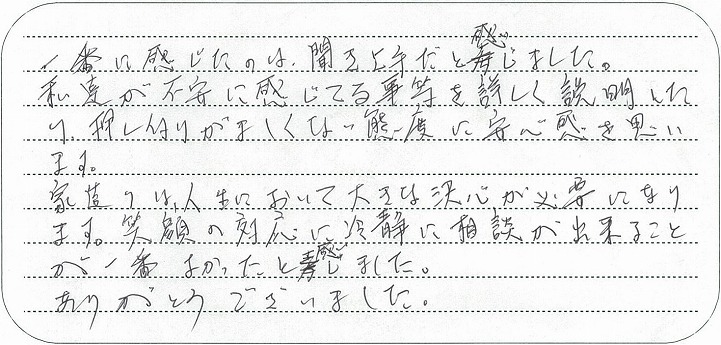 一番に感じたのは、聞き上手だと感じました。
私達が不安に感じてる事等を詳しく説明した
り、押し付けがましくない態度に安心感を思い
ます。
家造りは、人生において大きな決心が必要になり
ます。笑顔の対応に冷静に相談が出来ること
が一番よかったと感じました。
ありがとうございました。